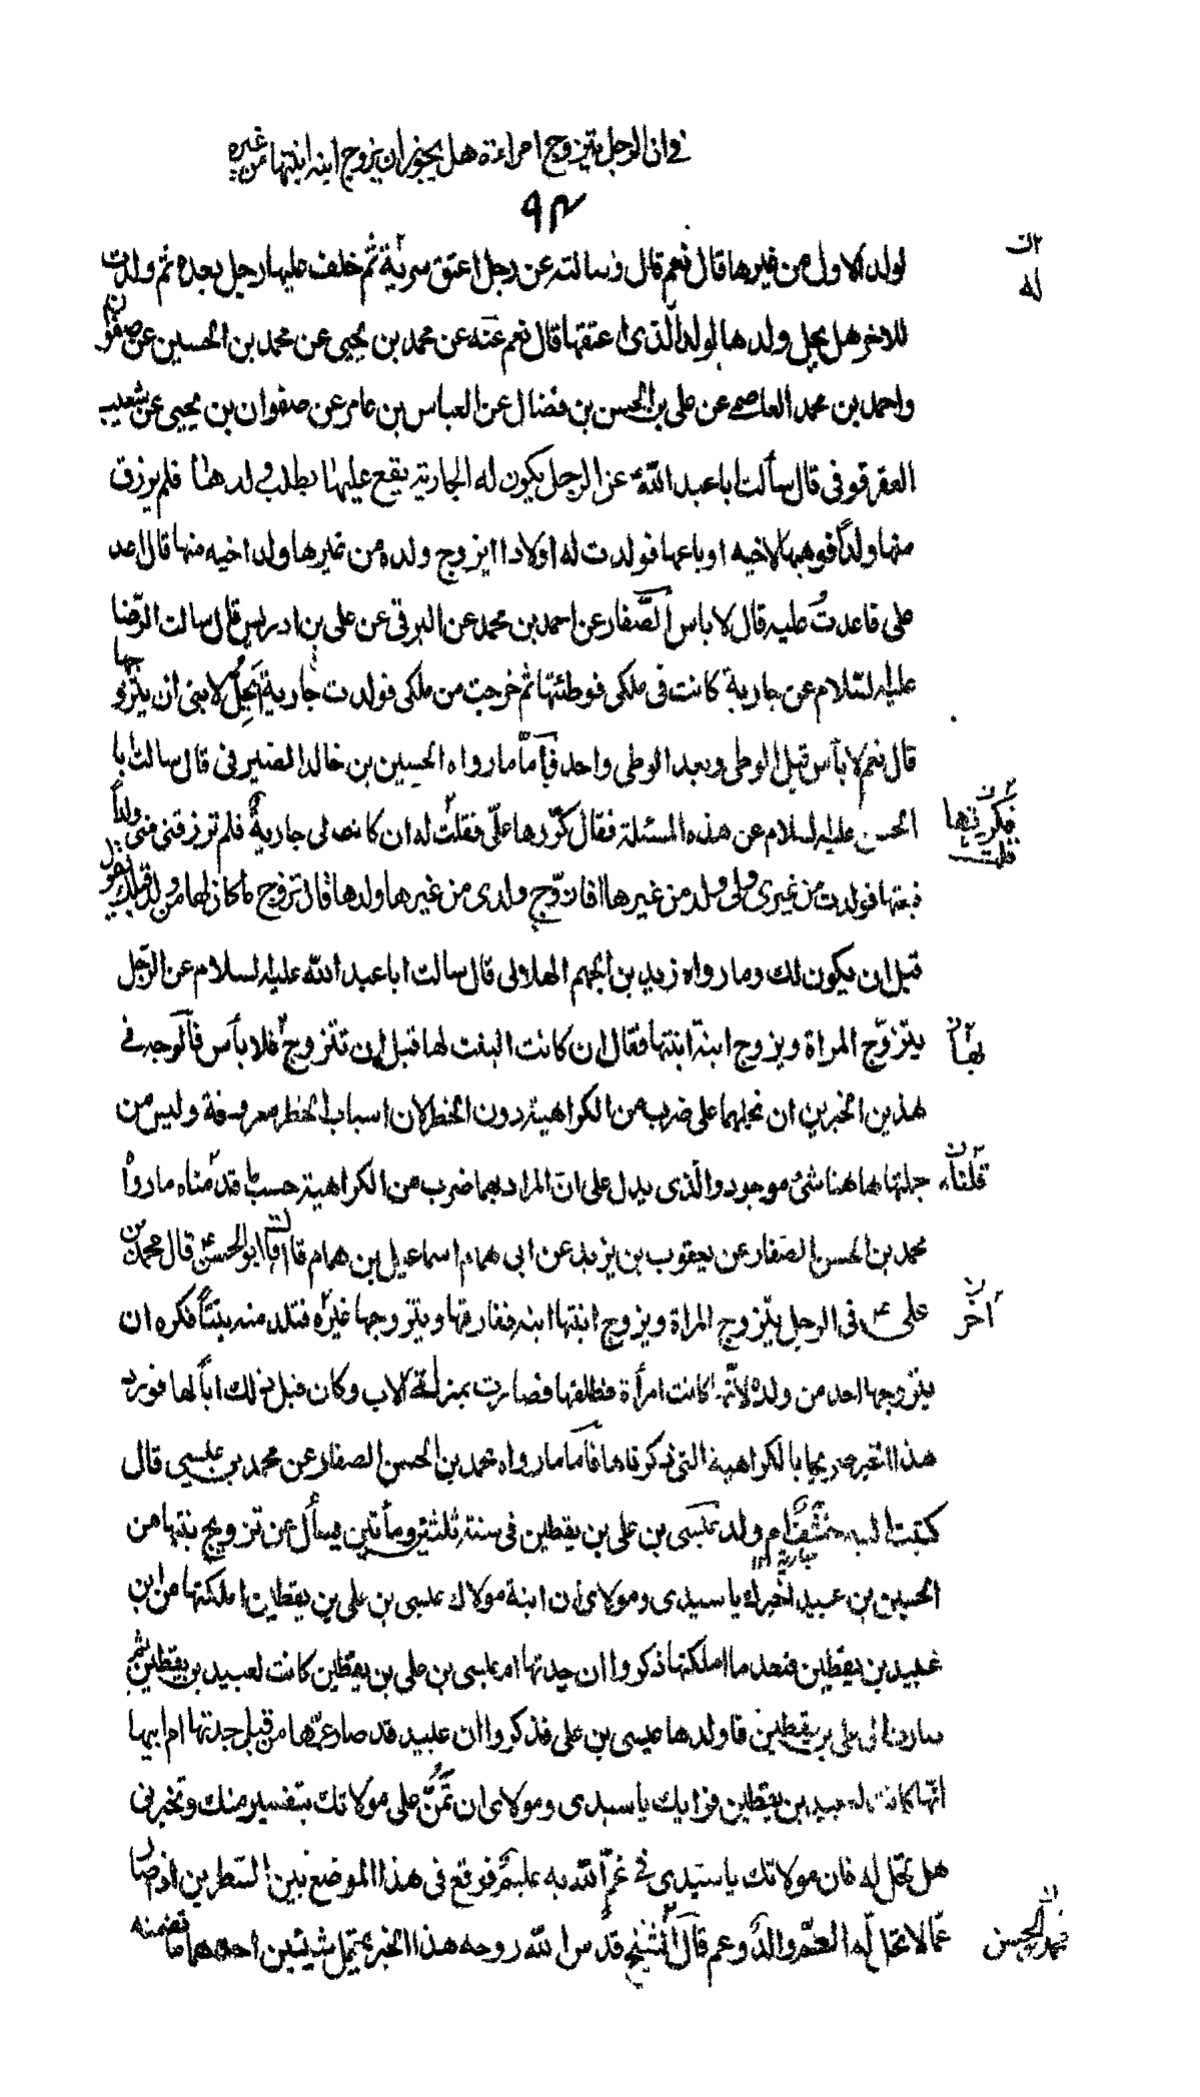 في ان الرجل يتزوج امراءة هل يجوز ان يزوج ابنه ابنتها من غيره
٩٣
لولد الاول من غيرها قال نعم قال وسالته عن رجل اعتق سرية ثم خلف عليها رجل بعده ثم ولدت
للاخر هل يحل ولدها لولد الذى اعتقها قال نعم عنه عن محمد بن يحيى عن محمد بن الحسين عن صفوان
واحمد بن محمد العاصمى عن على بن الحسن بن فضال عن العباس بن عامر عن صفوان بن يحيى عن شعيب
العقرقوفى قال سألت ابا عبد الله ع عن الرجل يكون له الجارية يقع عليها يطلب ولدها فلم يرزق
منها ولدًا فوهبها لاخيه او باعها فولدت له اولادا ايزوج ولده من غيرها ولد اخيه منها قال اعد
على فاعدت عليه قال لا باس الصّفار عن احمد بن محمد عن البرقى عن على بن ادريس قال سالت الرّضا
عليه السّلام عن جارية كانت فى ملكى فوطئتها ثم خرجت من ملكى فولدت جارية يحلّ لابنى ان يتزوجها
قال نعم لا بأس قبل الوطى وبعد الوطى واحد فأمّا ما رواه الحسين بن خالد الصيرفى قال سالت ابا
الحسن عليه السلام عن هذه المسئلة فقال كرّرها علىّ فقلت له ان كانت لى جارية فلم ترزق منى ولدًا
فبعتها فولدت من غيرى ولى ولد من غيرها افازوّج ولدى من غيرها ولدها قال تزوج ما كان لها من ولد قبلك يقول
قبل ان يكون لك وما رواه زيد بن الجهم الهلالى قال سالت ابا عبد الله عليه السلام عن الرّجل
يتزوّج المراة ويزوج ابنه ابنتها فقال ان كانت البنت لها قبل ان تتزوج فلا بأس فالوجه فى
هذين الخبرين ان نحملهما على ضرب من الكراهية دون الحظر لان اسباب الحظر معروفة وليس من
جملتها هاهنا شئ موجود والّذى يدل على ان المراد بهما ضرب من الكراهية حسب ما قدّمناه ما رواه
محمد بن الحسن الصفار عن يعقوب بن يزيد عن ابى همام اسماعيل بن همام قال قال ابو الحسن ع قال محمد بن
على ع فى الرجل يتزوج المراة ويزوج ابنتها ابنه ففارقها ويتزوجها غيره فتلد منه بنتًا فكره ان
يتزوجها احد من ولده لانّها كانت امرأة فطلقها فصارت بمنزلة الاب وكان قبل ذلك ابًا لها فورد
هذا الخبر صريحا بالكراهية التى ذكرناها فأمّا ما رواه محمد بن الحسن الصفار عن محمد بن عيسى قال
كتبت اليه ولد عيسى بن على بن يقطين فى سنة ثلث ومأتين يسأل عن تزويج بنتها من
الحسين بن عبيد اخبرك يا سيدى ومولاى ان ابنة مولاك عيسى بن على بن يقطين املكتها من ابن
عبيد بن يقطين فبعد ما املكتها ذكروا ان جدتها ام عيسى بن على بن يقطين كانت لعبيد بن يقطين ثم
صارت الى على بن يقطين فاولدها عيسى بن على فذكروا ان عبيد قد صار عمّها من قبل جدتها ام ابيها
انّها كانت لعبيد بن يقطين فرايك يا سيدى ومولاى ان تمنّ على مولاتك بتفسير منك وتخبرنى
هل تحل له فان مولاتك يا سيدى فى غمّ الله به عليم فوقع فى هذا الموضع بين السّطرين اذا صار
عمّا لا تحل له والعمّ والد وعم قال الشيخ قدّس الله روحه هذا الخبر يحتمل شيئين احدهما ما تضمنه
له
قلت
بها
قلناه
آخر
محمد بن الحسن